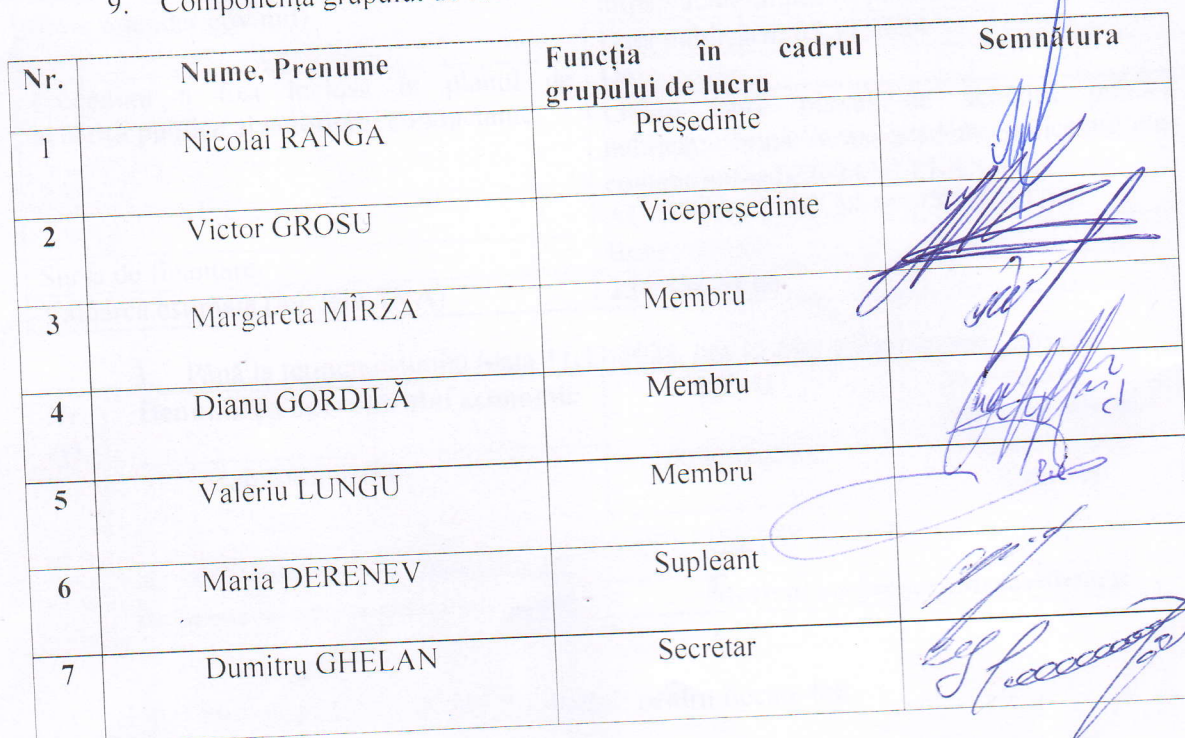 9. Componența grupului
Nr. Nume, Prenume Funcția în cadrul grupului de lucru Semnătura
1 Nicolai RANGA Președinte
2 Victor GROSU Vicepreședinte
3 Margareta MÎRZA Membru
4 Dianu GORDILĂ Membru
5 Valeriu LUNGU Membru
6 Maria DERENEV Supleant
7 Dumitru GHELAN Secretar